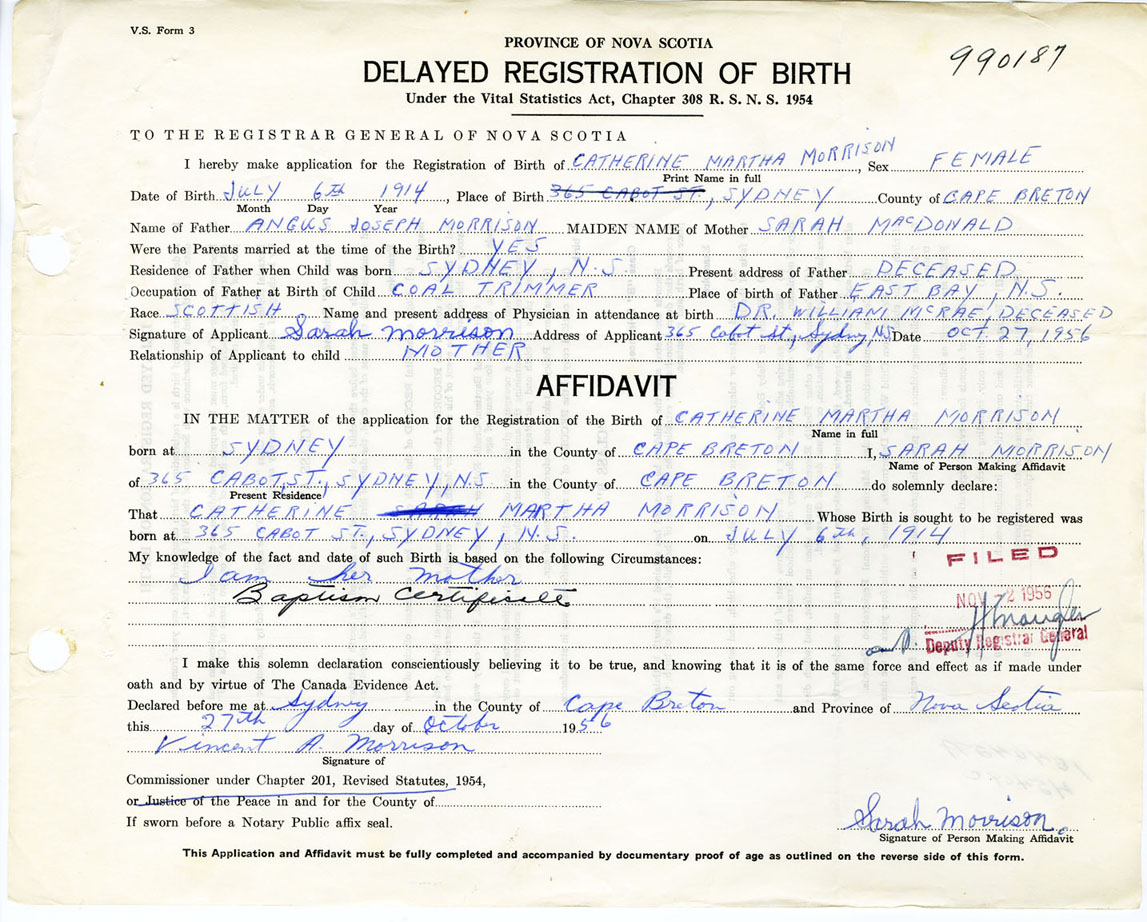 V.S. Form 3
PROVINCE OF NOVA SCOTIA
990187
DELAYED REGISTRATION OF BIRTH
Under the Vital Statistics Act, Chapter 308 R. S. N. S. 1954
TO THE REGISTRAR GENERAL OF NOVA SCOTIA
I hereby make application for the Registration of Birth of CATHERINE MARTHA MORRISON, Sex FEMALE
Print Name in full
Date of Birth JULY 6th 1914, Place of Birth 365 CABOT ST., SYDNEY County of CAPE BRETON
Month Day Year
Name of Father ANGUS JOSEPH MORRISON MAIDEN NAME of Mother SARAH MacDONALD
Were the Parents married at the time of the Birth? YES
Residence of Father when Child was born SYDNEY, N.S. Present address of Father DECEASED
Occupation of Father at Birth of Child COAL TRIMMER Place of birth of Father EAST BAY, N.S.
Race SCOTTISH Name and present address of Physician in attendance at birth DR. WILLIAM McRAE, DECEASED
Signature of Applicant Sarah Morrison Address of Applicant 365 Cabt St, Sydney, NS Date OCT. 27, 1956
Relationship of Applicant to child MOTHER
AFFIDAVIT
IN THE MATTER of the application for the Registration of the Birth of CATHERINE MARTHA MORRISON
Name in full
born at SYDNEY in the County of CAPE BRETON I, SARAH MORRISON
Name of Person Making Affidavit
of 365 CABOT, ST., SYDNEY, N.S in the County of CAPE BRETON do solemnly declare:
Present Residence
That CATHERINE MARTHA MORRISON Whose Birth is sought to be registered was
born at 365 CABOT ST., SYDNEY, N.S. on JULY 6th, 1914
My knowledge of the fact and date of such Birth is based on the following Circumstances:
FILED
I am her mother
Baptism Certificate
NOV 1956
Deputy Registrar General
I make this solemn declaration conscientiously believing it to be true, and knowing that it is of the same force and effect as if made under
oath and by virtue of The Canada Evidence Act.
Declared before me at Sydney in the County of Cape Breton and Province of Nova Scotia
this 27th day of Octobr 1956
Vincent A. Morrison
Signature of
Commissioner under Chapter 201, Revised Statutes, 1954,
or Justice of the Peace in and for the County of
If sworn before a Notary Public affix seal.
Sarah Morrison.
Signature of Person Making Affidavit
This Application and Affidavit must be fully completed and accompanied by documentary proof of age as outlined on the reverse side of this form.